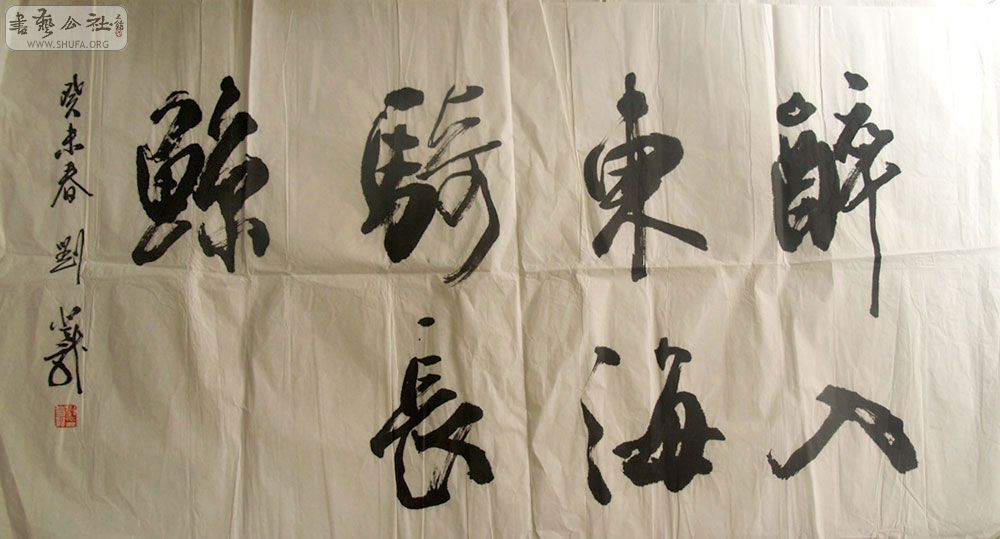 醉入
東海
騎長
鯨
癸未春 劉
書藝公社
WWW.SHUFA.ORG